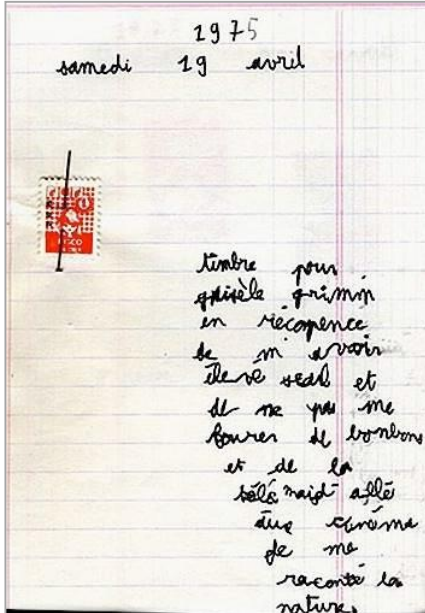 1975
samedi 19 avril
timbre pour
gisèle grimm
en récompence
de m avoir
élevé seul et
de ne pas me
fourer de bonbons
et de la
télé mais d allé
au cinéma
de me
raconté la
nature.